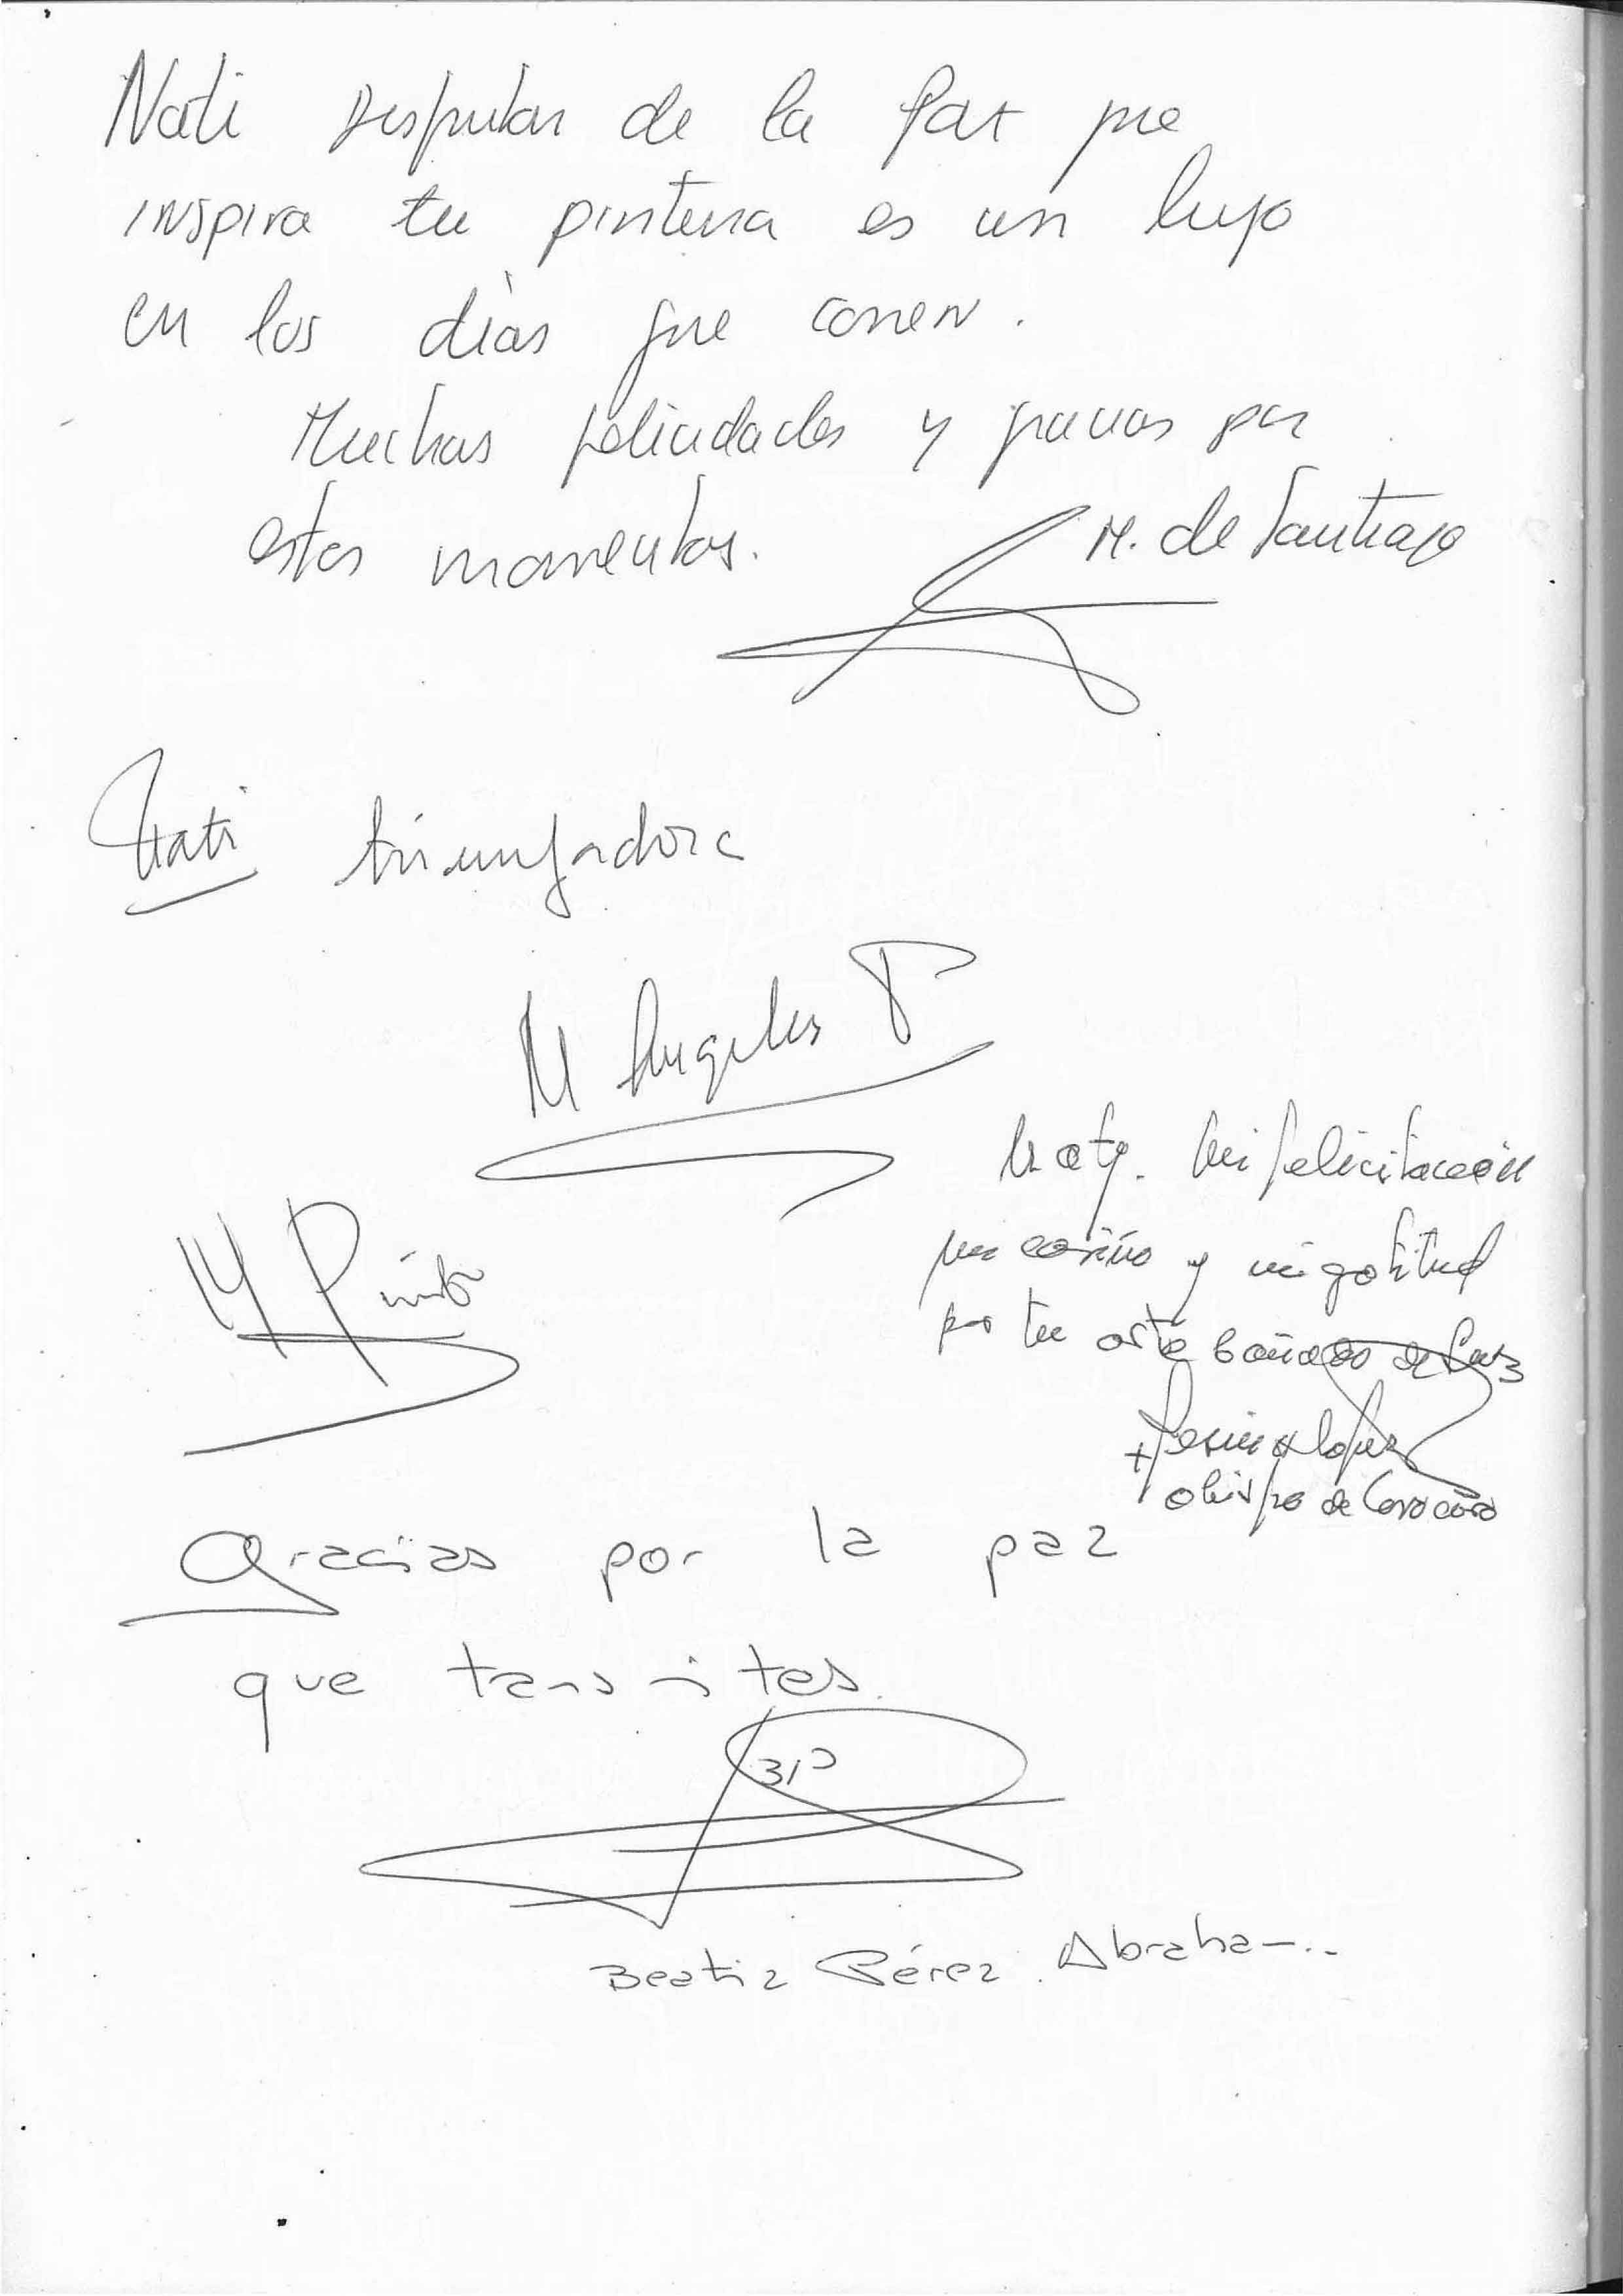 Nati Disfrutar de la Paz que
inspira tu pintura es un lujo
en los días que corren.
Muchas felicidades y gracias por
estos momentos.
M. de Santiago
Nati triunfadora
M Angeles P
Naty. Mi felicitación
mi cariño y mi gratitud
por tu arte bañado de luz
+
obispo de
M Pinto
Gracias por la paz
que transmites.
Beatriz Pérez Abraham...